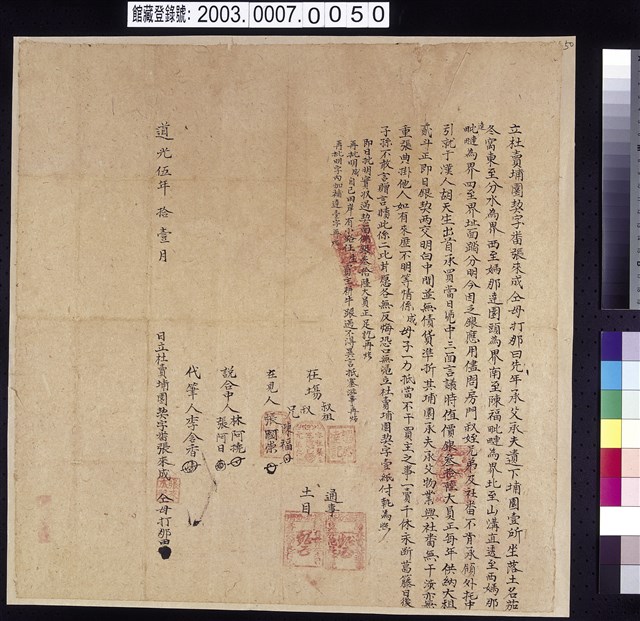 館藏登錄號: 2003.0007.0050
50
立杜賣埔園契字番張來成仝母打那曰先年承父承夫遺下埔園壹所坐落土名茄
冬窩東至分水為界西至媽那達園頭為界南至陳福毗嗹為界北至山溝直透至西媽那
達
毗嗹為界四至界址面踏分明今因乏銀應用儘問房門叔姪兄弟及社番不肯承領外托中
引就于漢人胡天生出首承買當日憑中三面言議時值價銀叁拾陸大員正每年供納大租
貳斗正即日銀契兩交明白中間並無債貨準折其埔園承夫承父物業與社番無干涉亦無
重張典掛他人如有來歷不明等情係成母子一力抵當不干買主之事一賣千休永斷葛籐日後
子孫不敢言贈言贖此係二比甘愿各無反悔恐口無憑立杜賣埔園契字壹紙付執為照
即日批明實收過契面銀叁拾陸大員正足訖再炤
再批明成自己田岸有小路任
再批明字內加埔達壹字再炤
在場
叔祖
叔
兄
陳福
在見人張國崇
說合中人林阿接
張阿日
代筆人李念香
通事
土目
道光伍年拾壹月
日立杜賣埔園契字番張來成
仝母打那曰